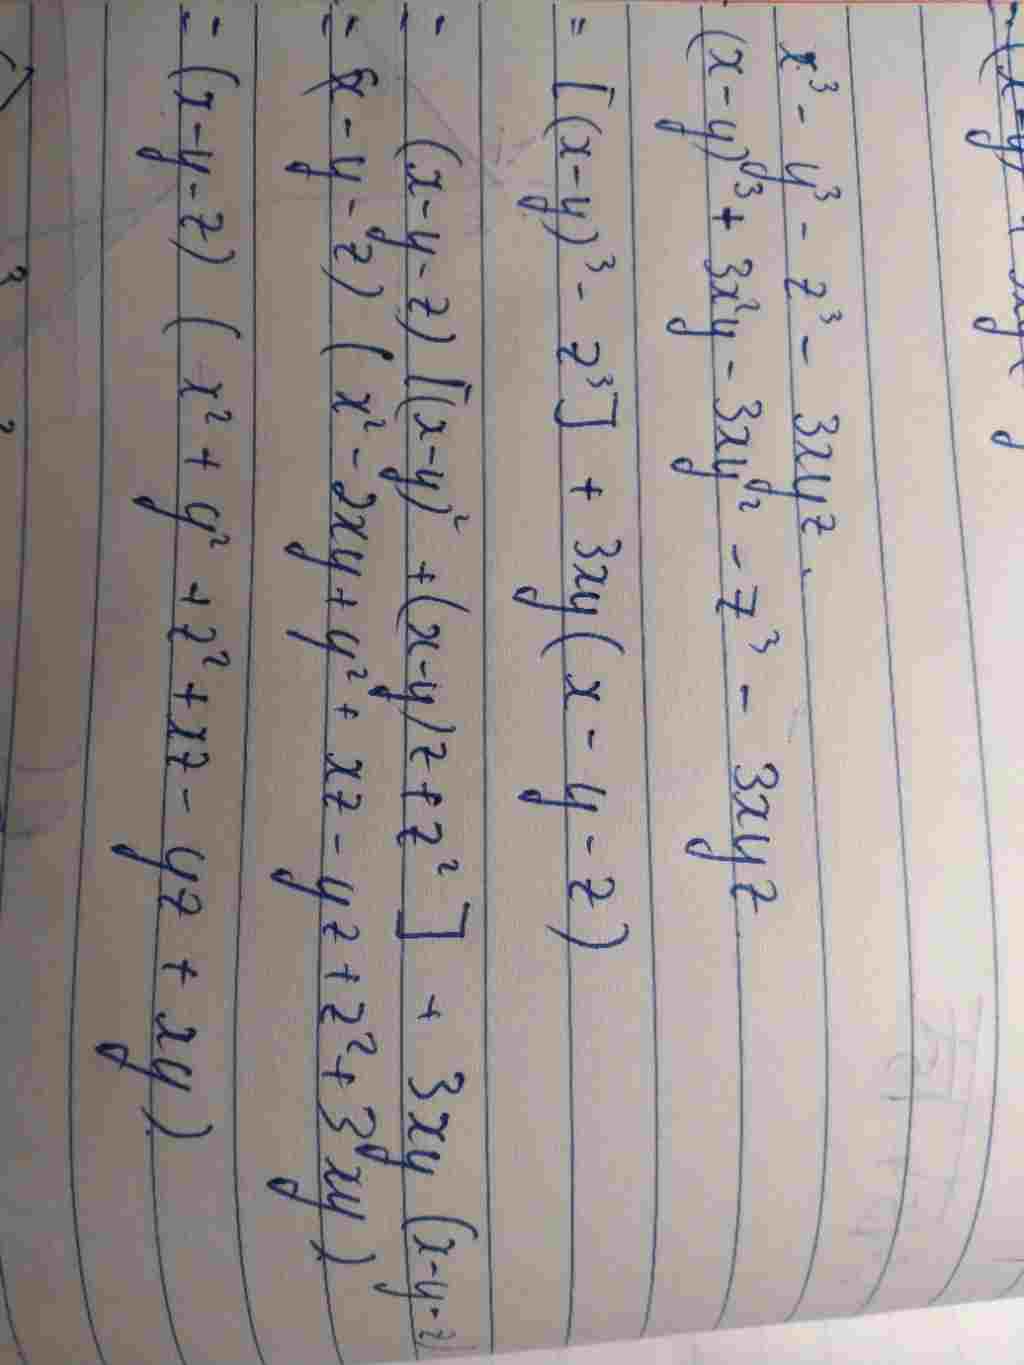 x³ - y³ - z³ - 3xyz.
(x-y)³ + 3x²y - 3xy² - z³ - 3xyz
= [(x-y)³ - z³] + 3xy(x - y - z)
= (x-y-z) [(x-y)² + (x-y)z + z²] + 3xy (x-y-z)
= (x - y - z) (x² - 2xy + y² + xz - yz + z² + 3xy)
= (x-y-z) (x² + y² + z² + xz - yz + xy)